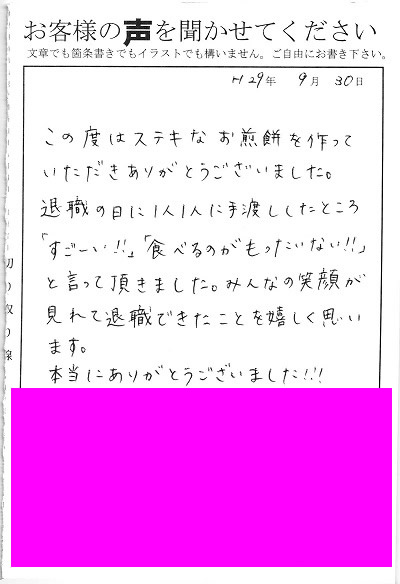 お客様の声を聞かせてください
文章でも箇条書きでもイラストでも構いません。ご自由にお書き下さい。
H29年 9月 30日
この度はステキなお煎餅を作って
いただきありがとうございました。
退職の日に1人1人に手渡ししたところ
「すごーい!!」「食べるのがもったいない!!」
と言って頂きました。みんなの笑顔が
見れて退職できたことを嬉しく思い
ます。
本当にありがとうございました!!!
切り取り線